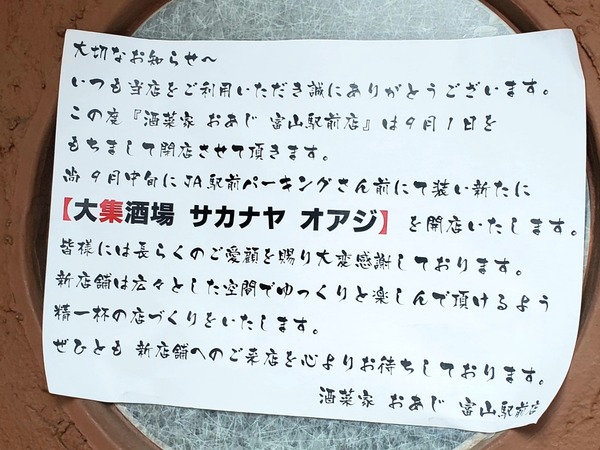 大切なお知らせ～
いつも当店をご利用いただき誠にありがとうございます。
この度『酒菜家 おあじ 富山駅前店』は９月１日を
もちまして閉店させて頂きます。
尚 ９月中旬にJA駅前パーキングさん前にて装い新たに
【大集酒場 サカナヤ オアジ】を開店いたします。
皆様には長らくのご愛顧を賜り大変感謝しております。
新店舗は広々とした空間でゆっくりと楽しんで頂けるよう
精一杯の店づくりをいたします。
ぜひとも 新店舗へのご来店を心よりお待ちしております。
酒菜家 おあじ 富山駅前店